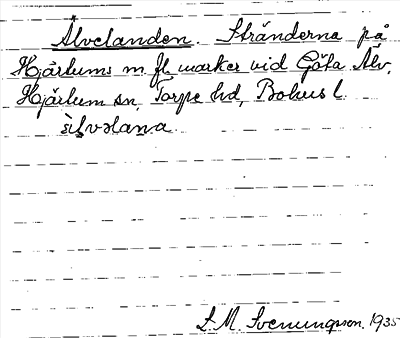 Älvelanden. Stränderna på
Hjärtums m fl marker vid Göta Älv,
Hjärtum sn, Torpe hd, Bohus l.
S. M. Svenungsson. 1935